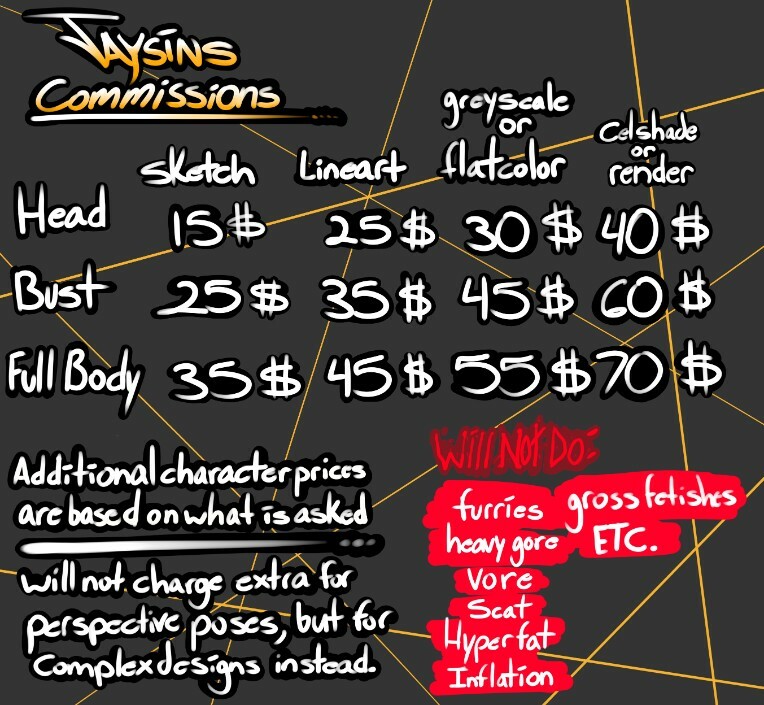 Jaysins
Commissions
greyscale
or
flatcolor
Celshade
or
render
Sketch
Lineart
Head 15$ 25$ 30$ 40$
Bust 25$ 35$ 45$ 60$
Full Body 35$ 45$ 55$ 70$
Additional character prices
are based on what is asked
will not charge extra for
perspective poses, but for
complex designs instead.
Will Not Do:
furries
heavy gore
Vore
Scat
Hyperfat
Inflation
gross fetishes
ETC.